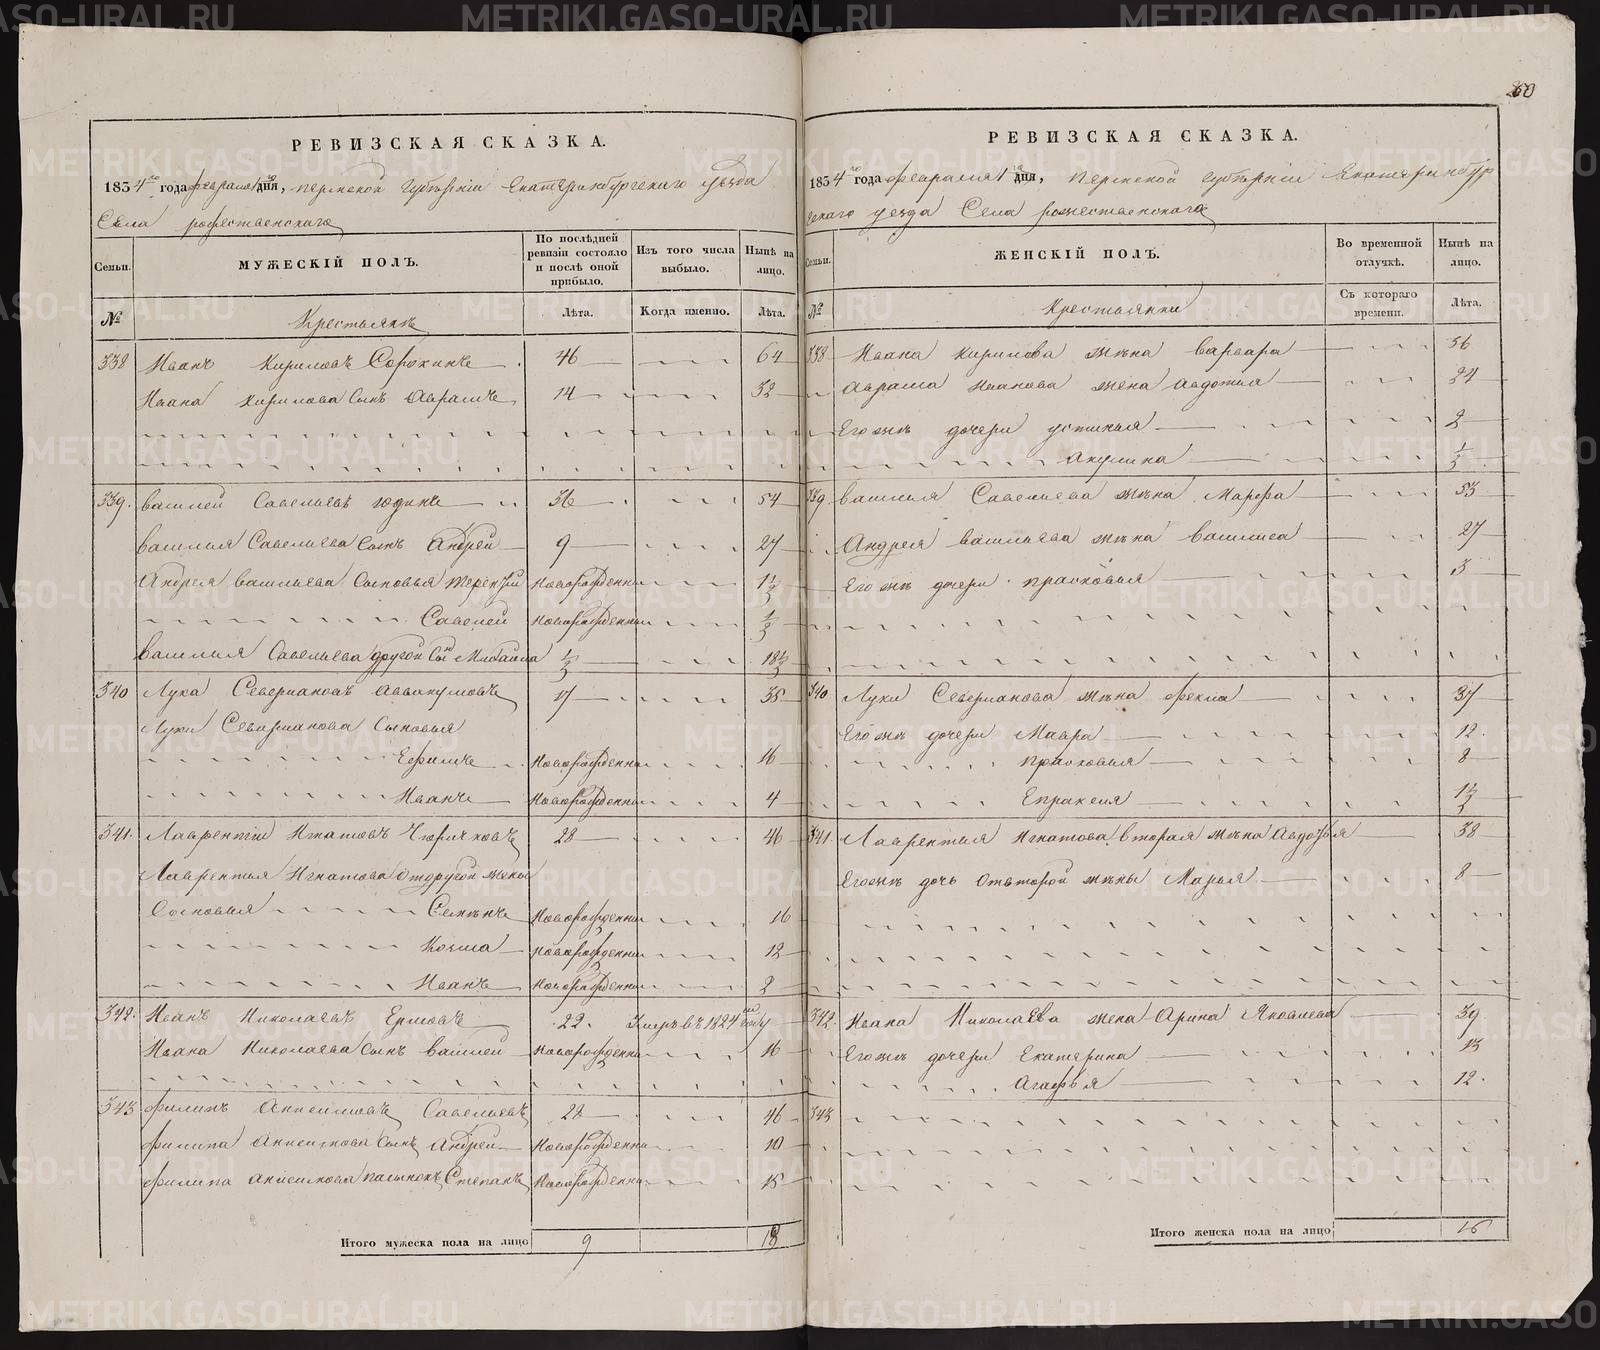 260
РЕВИЗСКАЯ СКАЗКА.
1834го года февраля 1го дня, Пермской Губѣрнiи Екатеринбургскаго Уѣзда
Села рожественскаго
Семьи.
МУЖЕСКIЙ ПОЛЪ.
По послѣдней ревизiи состояло и послѣ оной прибыло.
Изъ того числа выбыло.
Нынѣ на лицо.
№
Крестьянъ
Лѣта.
Когда именно.
Лѣта.
338 Иванъ Кириловъ Сорокинъ 46 64
Ивана Кирилова Сынъ Аврамъ 14 32
339. Василей Савельевъ Юдинъ 36 54
Василья Савельева Сынъ Андрей 9 27
Андрея Васильева Сыновья Терентий Новорожденны 1 1/2
Савелей Новорожденны 1/2
Василья Савельева другой Сын Михайла 1/2 18 1/2
340 Лука Северьановъ Аввакумовъ 17 35
Луки Северьанова Сыновья
Ефимъ Новорожденны 16
Иванъ Новорожденны 4
341. Лаврентiй Игнатовъ 28 46
Лаврентья Игнатова Отдругой жены
Сыновья Семѣнъ Новорожденны 16
Козма новорожденны 12
Иванъ Новорожденны 2
342. Иванъ Николаевъ Ермовъ 22. Умеръ въ 1824м году
Ивана Николаева Сынъ Василей Новорожденны 16
343 Филипъ Анисимовъ Савельевъ 28 46
Филипа Анисимова Сынъ Андрей Новорожденны 10
Филипа Анисимова пасынокъ Степанъ Новорожденны 15
Итого мужеска пола на лицо 9 18
РЕВИЗСКАЯ СКАЗКА.
1834го года февраля 1го дня, Пермской губѣрнiи Екатеринбур
скаго уезда Села рожественскаго
Семьи.
ЖЕНСКIЙ ПОЛЪ.
Во временной отлучкѣ.
Нынѣ на лицо.
№
Крестьянки
Съ котораго времени.
Лѣта.
338 Ивана Кирилова жѣна Варвара 56
Аврама Иванова жена Авдотья 24
Его жъ дочери устинья 2
Акулина 1/2
339. Василья Савельева жѣна Марфа 53
Андрея Васильева жѣна Василиса 27
Его жъ дочери прасковья 3
340 Луки Северьанова жѣна Фекла 37
Его жъ дочери Мавра 12.
прасковья 8
Епраксия 1 1/2
341. Лаврентья Игнатова вторая жѣна Авдотья 38
Его жъ дочь Отвторой жѣны Марья 8
342. Ивана Николаева жена Арина Яковлева 39
Его жъ дочери Екатерина 13
Агафья 12.
343
Итого женска пола на лицо 16
METRIKI.GASO-URAL.RU